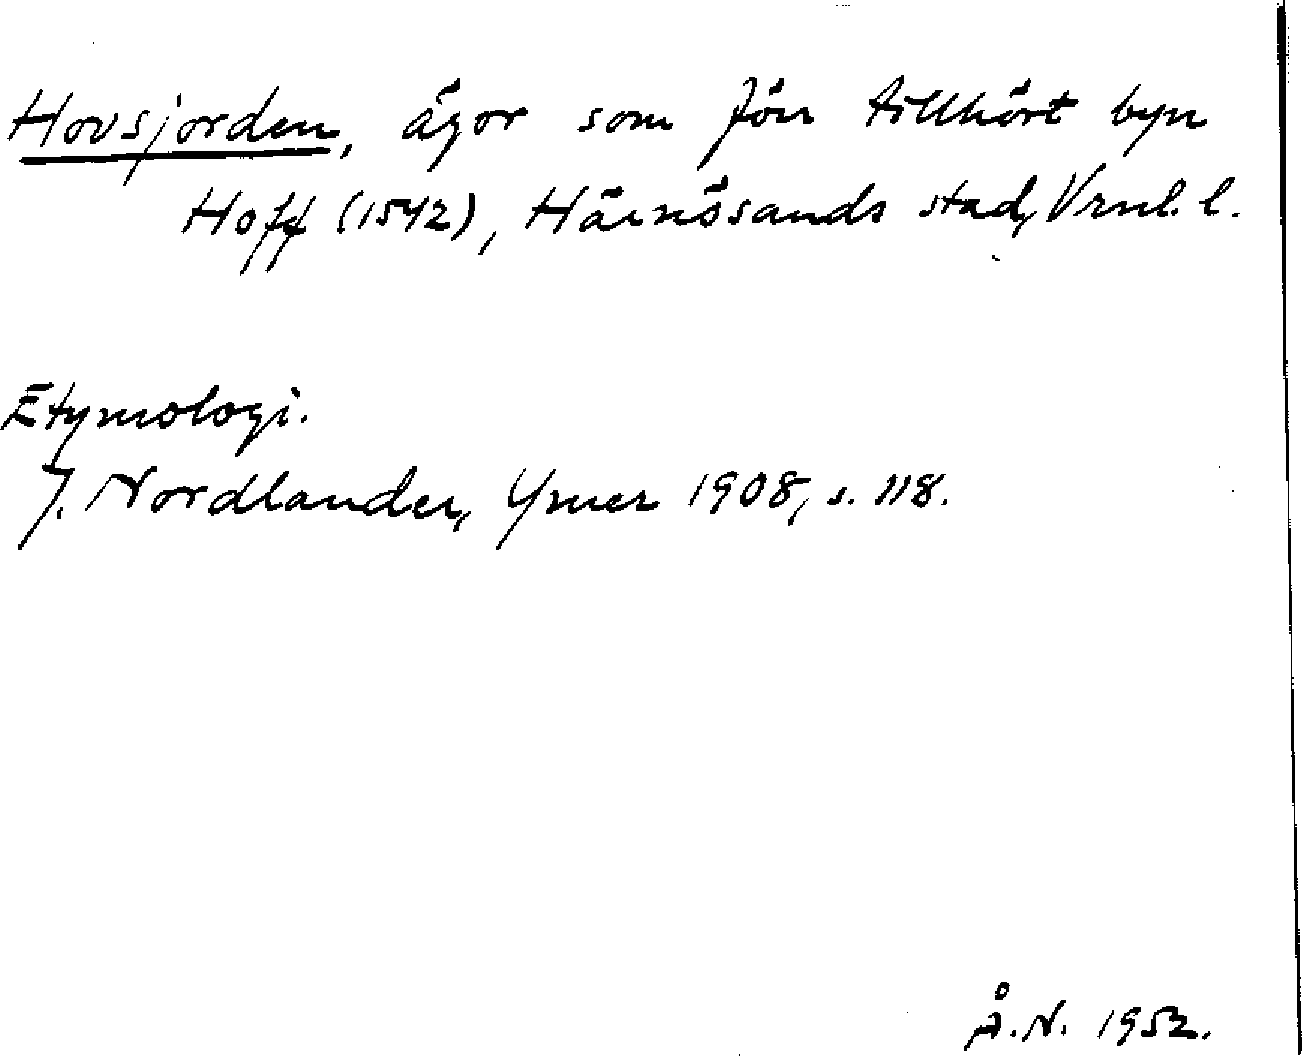 Hovsjorden, ägor som förr tillhört byn
Hoff (1542), Härnösands stad, Vrnl. l.
Etymologi.
J. Nordlander, Ymer 1908, s. 118.
Å.N. 1952.